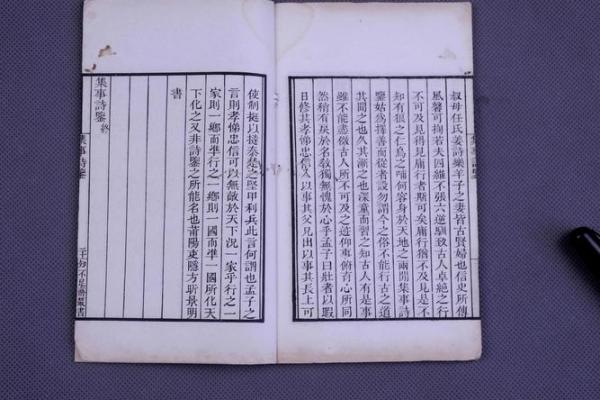 叔母任氏姜詩樂羊子之妻皆古賢婦也信史所傳
風馨可掬若夫四維不張六逆馴致古人卓絕之行
不可及見得見庸行者斯可矣庸行猶不及見是不
知有狼之仁烏之哺何容身於天地之兩間集事詩
鑒姑爲擇善而從者設勿謂今之俗不能行古之道
其聞之也久其漸之也深童而習之知古人有是事
雖不能悉倣古人所不可及之迹仰俯心所同
然稍有戾於名敎獨無愧於心乎孟子曰壯者以暇
日修其孝悌忠信入以事其父兄出以事其長上可
使制挺以撻秦楚之堅甲利兵此言何謂也孟子之
言則孝悌忠信可以無敵於天下況一家乎行之一
家則一鄉而準行之一鄉則一國而準一國所化天
下化之又非詩鑒之所能名也莆陽吏隱方昕景明
書
集事詩鑒終
集事詩鑒
知不足齋叢書